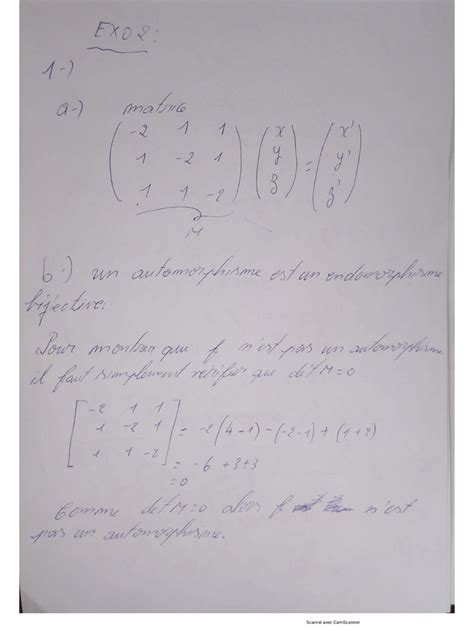 EXO2:
1-)
a-) matrice
( -2 1 1 ) ( x ) ( x' )
( 1 -2 1 ) ( y ) = ( y' )
( 1 1 -2 ) ( z ) ( z' )
M
b-) un automorphisme est un endomorphisme
bijective.
Pour montrer que f n'est pas un automorphisme
il faut simplement verifier que det M=0
[ -2 1 1
1 -2 1 = -2(4-1)-(-2-1)+(1+2)
1 1 -2 ] = -6 +3+3
=0
Comme det M=0 alors f n'est
pas un automorphisme.
Scanné avec CamScanner